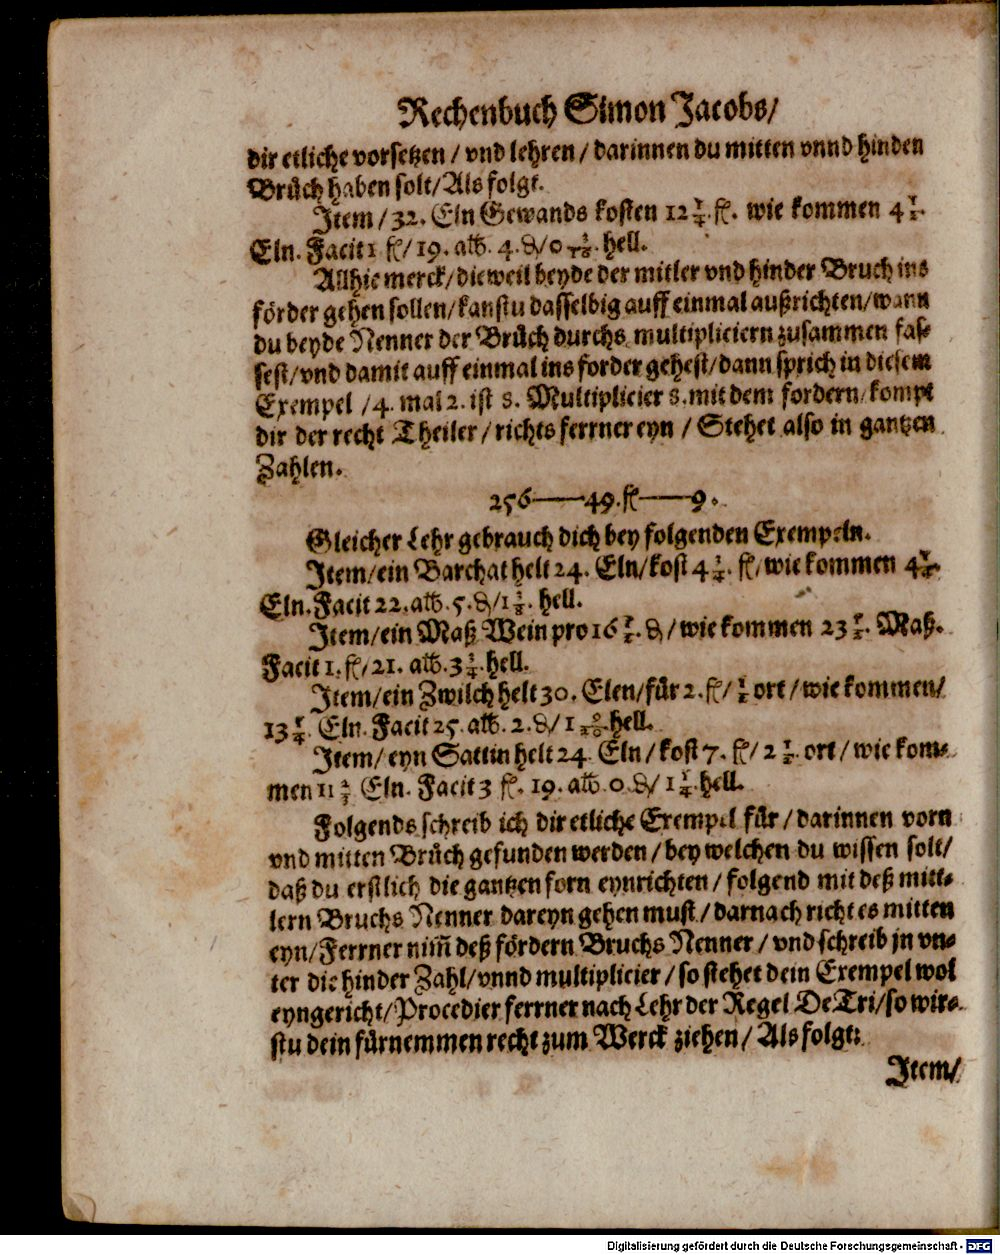 Rechenbuch Simon Jacobs/
dir etliche vorsetzen / vnd lehren / darinnen du mitten vnnd hinden
Brüch haben solt/Als folgt.
Item / 32. Eln Gewands kosten 12 1/4. fl. wie kommen 4 1/2.
Eln. Facit 1 fl/ 19. alb. 4. ₰/0 3/16. hell.
Allhie merck/dieweil beyde der mitler vnd hinder Bruch ins
förder gehen sollen/kanstu dasselbig auff einmal außrichten/wann
du beyde Nenner der Brüch durchs multipliciern zusammen fas-
sest/vnd damit auff einmal ins forder gehest/dann sprich in diesem
Exempel /4. mal 2. ist 8. Multiplicier 8. mit dem fordern/kompt
dir der recht Theiler / richts ferrner eyn / Stehet also in gantzen
Zahlen.
256——49.fl——9.
Gleicher Lehr gebrauch dich bey folgenden Exempeln.
Item/ein Barchat helt 24. Eln/kost 4 1/4. fl/wie kommen 4 3/4.
Eln. Facit 22. alb. 5. ₰/1 3/8. hell.
Item/ein Maß Wein pro 16 1/2. ₰/wie kommen 23 3/8. Maß.
Facit 1. fl/21. alb. 3 3/8. hell.
Item/ein Zwilch helt 30. Elen/für 2. fl/ 1/2 ort / wie kommen/
13 1/4. Eln. Facit 25. alb. 2. ₰/1 9/20. hell.
Item/ eyn Sattin helt 24 Eln/kost 7. fl/ 2 1/2. ort/ wie kom-
men 11 2/3 Eln. Facit 3 fl. 19. alb. 0 ₰/1 1/4. hell.
Folgends schreib ich dir etliche Exempel für/ darinnen vorn
vnd mitten Brüch gefunden werden/bey welchen du wissen solt/
daß du erstlich die gantzen forn eynrichten/folgend mit deß mitt-
lern Bruchs Nenner dareyn gehen must/darnach richt es mitten
eyn/Ferrner nim̃ deß fördern Bruchs Nenner/vnd schreib jn vn-
ter die hinder Zahl/vnnd multiplicier/so stehet dein Exempel wol
eyngericht/Procedier ferrner nach Lehr der Regel De Tri/so wir-
stu dein fürnemmen recht zum Werck ziehen/ Als folgt:
Item/
Digitalisierung gefördert durch die Deutsche Forschungsgemeinschaft - DFG